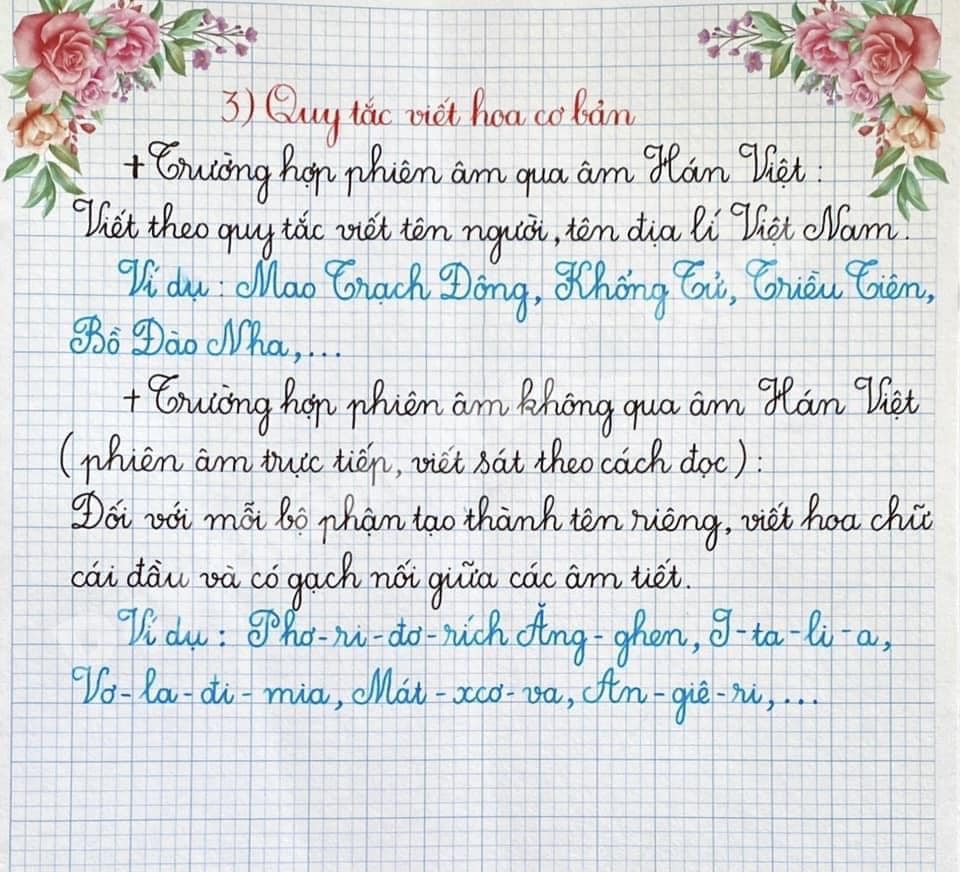 3) Quy tắc viết hoa cơ bản
+ Trường hợp phiên âm qua âm Hán Việt :
Viết theo quy tắc viết tên người, tên địa lí Việt Nam.
Ví dụ : Mao Trạch Đông, Khổng Tử, Triều Tiên,
Bồ Đào Nha,...
+ Trường hợp phiên âm không qua âm Hán Việt
( phiên âm trực tiếp, viết sát theo cách đọc ) :
Đối với mỗi bộ phận tạo thành tên riêng, viết hoa chữ
cái đầu và có gạch nối giữa các âm tiết.
Ví dụ : Phơ-ri-đơ-rích Ăng-ghen, I-ta-li-a,
Vơ-la-đi-mia, Mát-xcơ-va, An-giê-ri,...